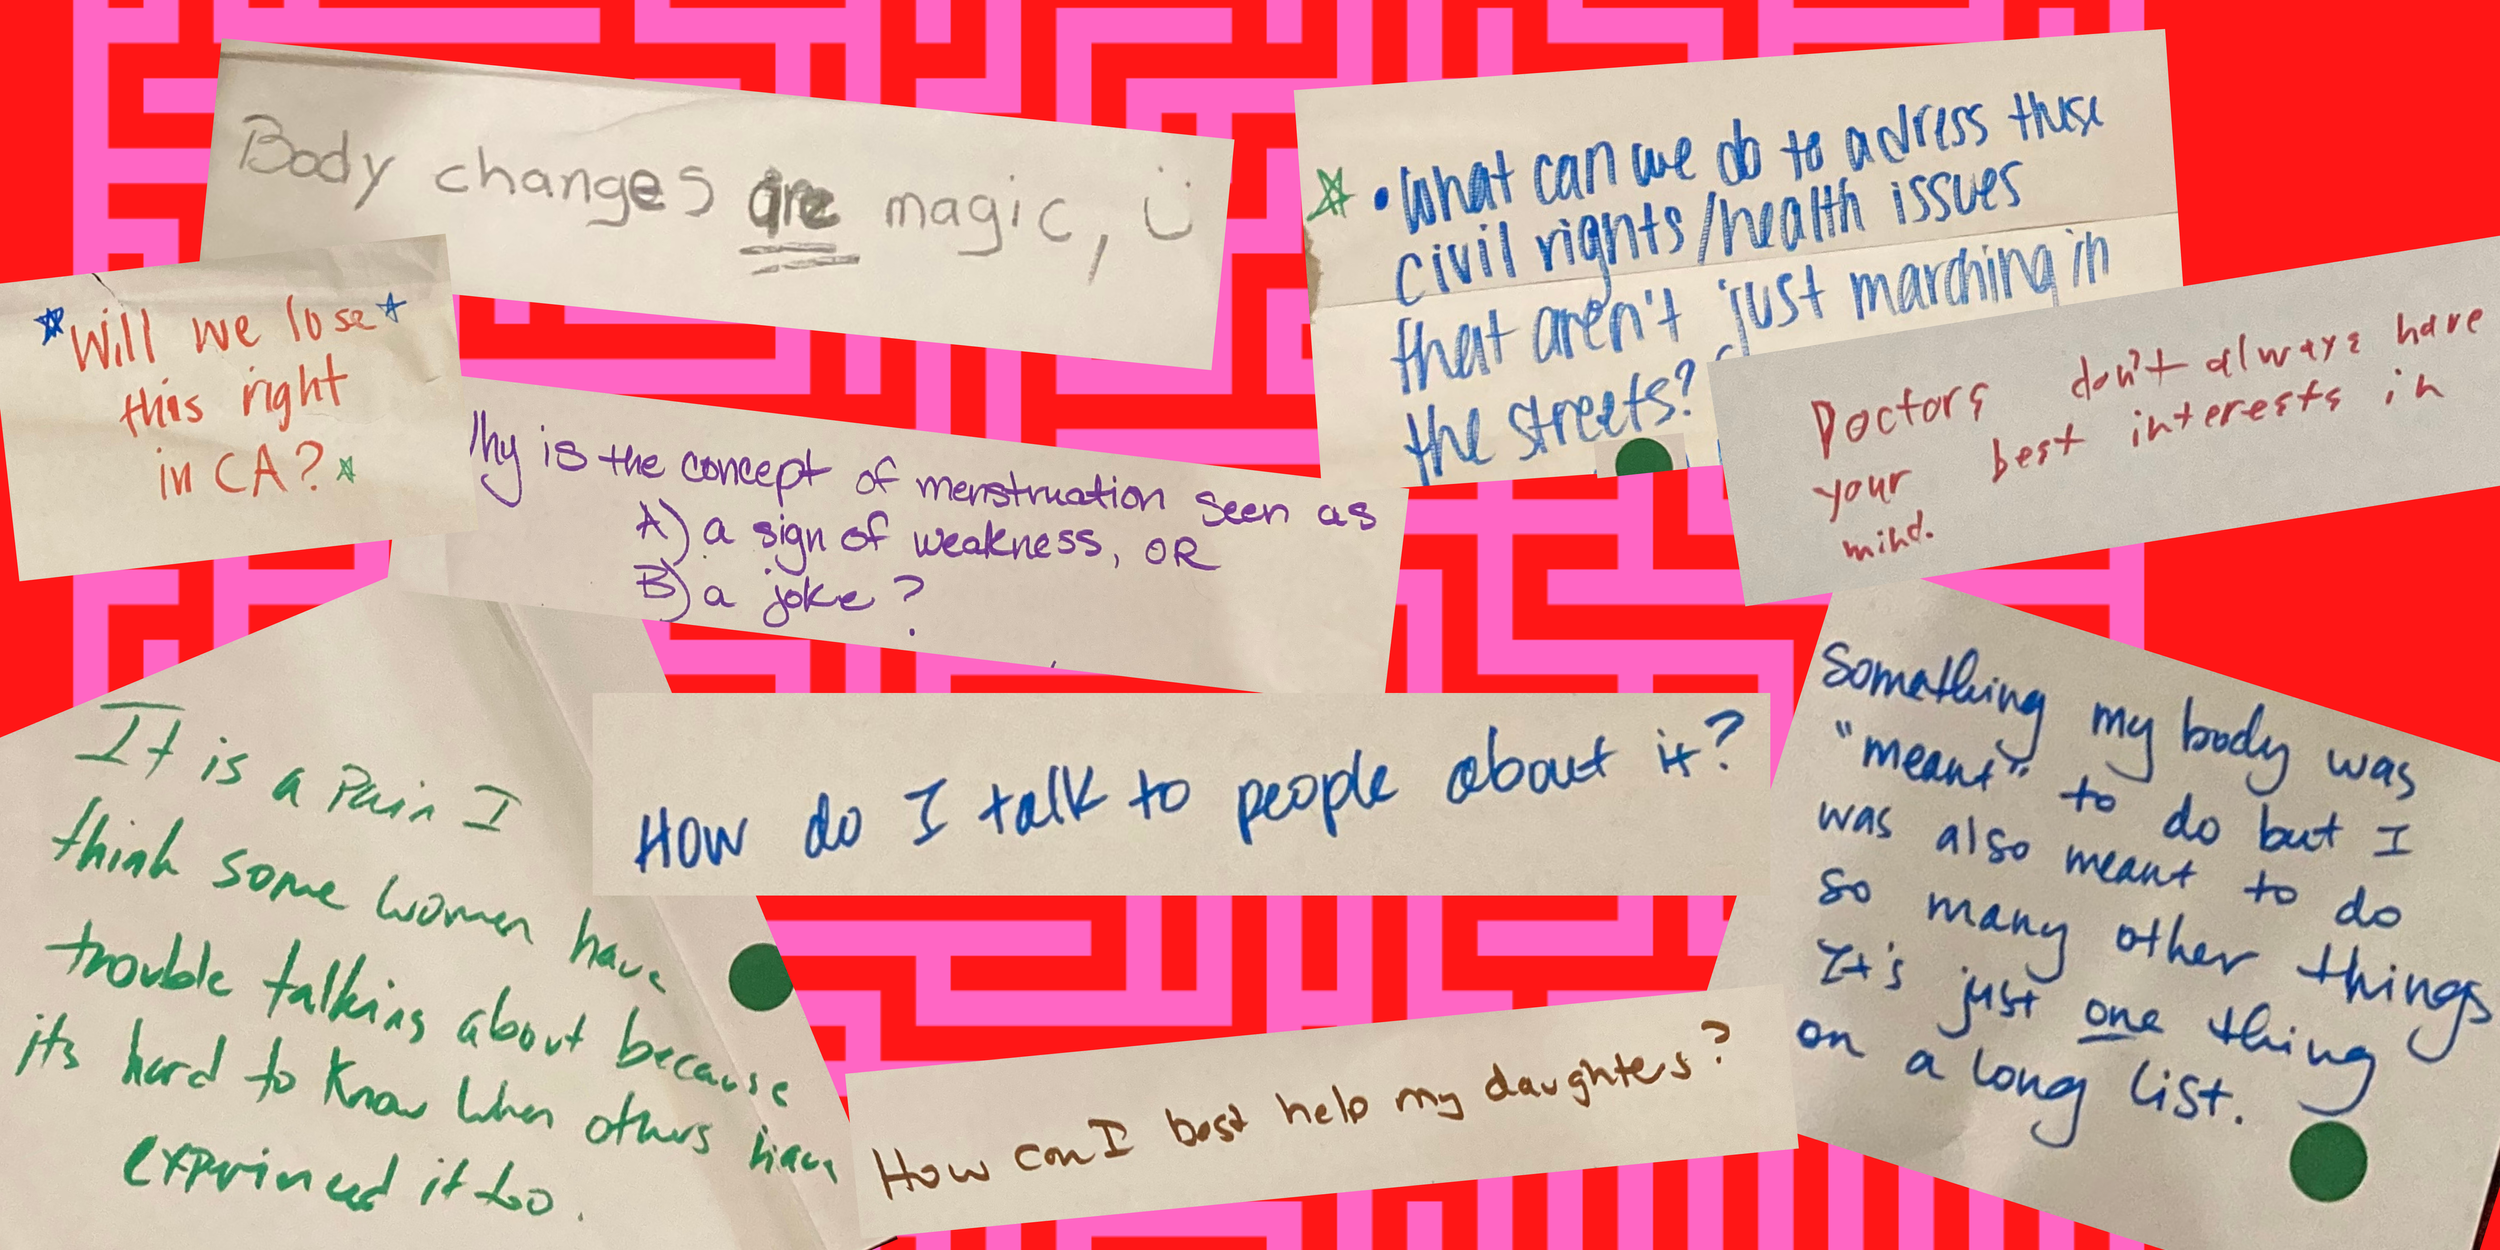 Body changes are magic, ü
• What can we do to adress these
civil rights/health issues
that aren't just marching in
the streets?
*Will we lose*
this right
in CA?*
Doctors don't always have
your best interests in
mind.
hy is the concept of menstruation seen as
A) a sign of weakness, OR
B) a joke?
It is a Pain I
think some women have
trouble talking about because
its hard to know when others have
exprinced it too.
How do I talk to people about it?
Something my body was
"meant" to do but I
was also meant to do
so many other things
It's just one thing
on a long list.
How can I best help my daughters?